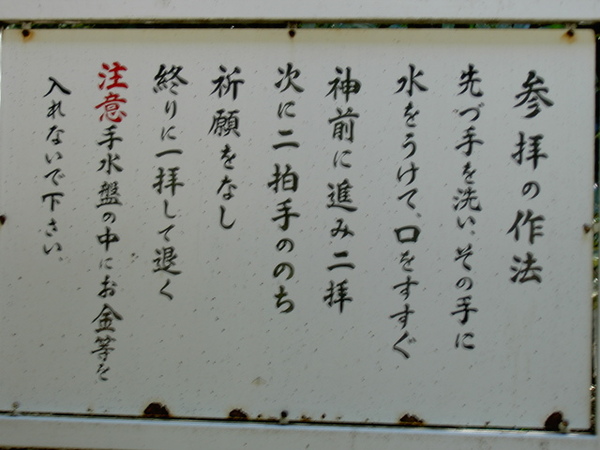 参拝の作法
先づ手を洗い、その手に
水をうけて、口をすすぐ
神前に進み二拝
次に二拍手ののち
祈願をなし
終りに一拝して退く
注意手水盤の中にお金等を
入れないで下さい。